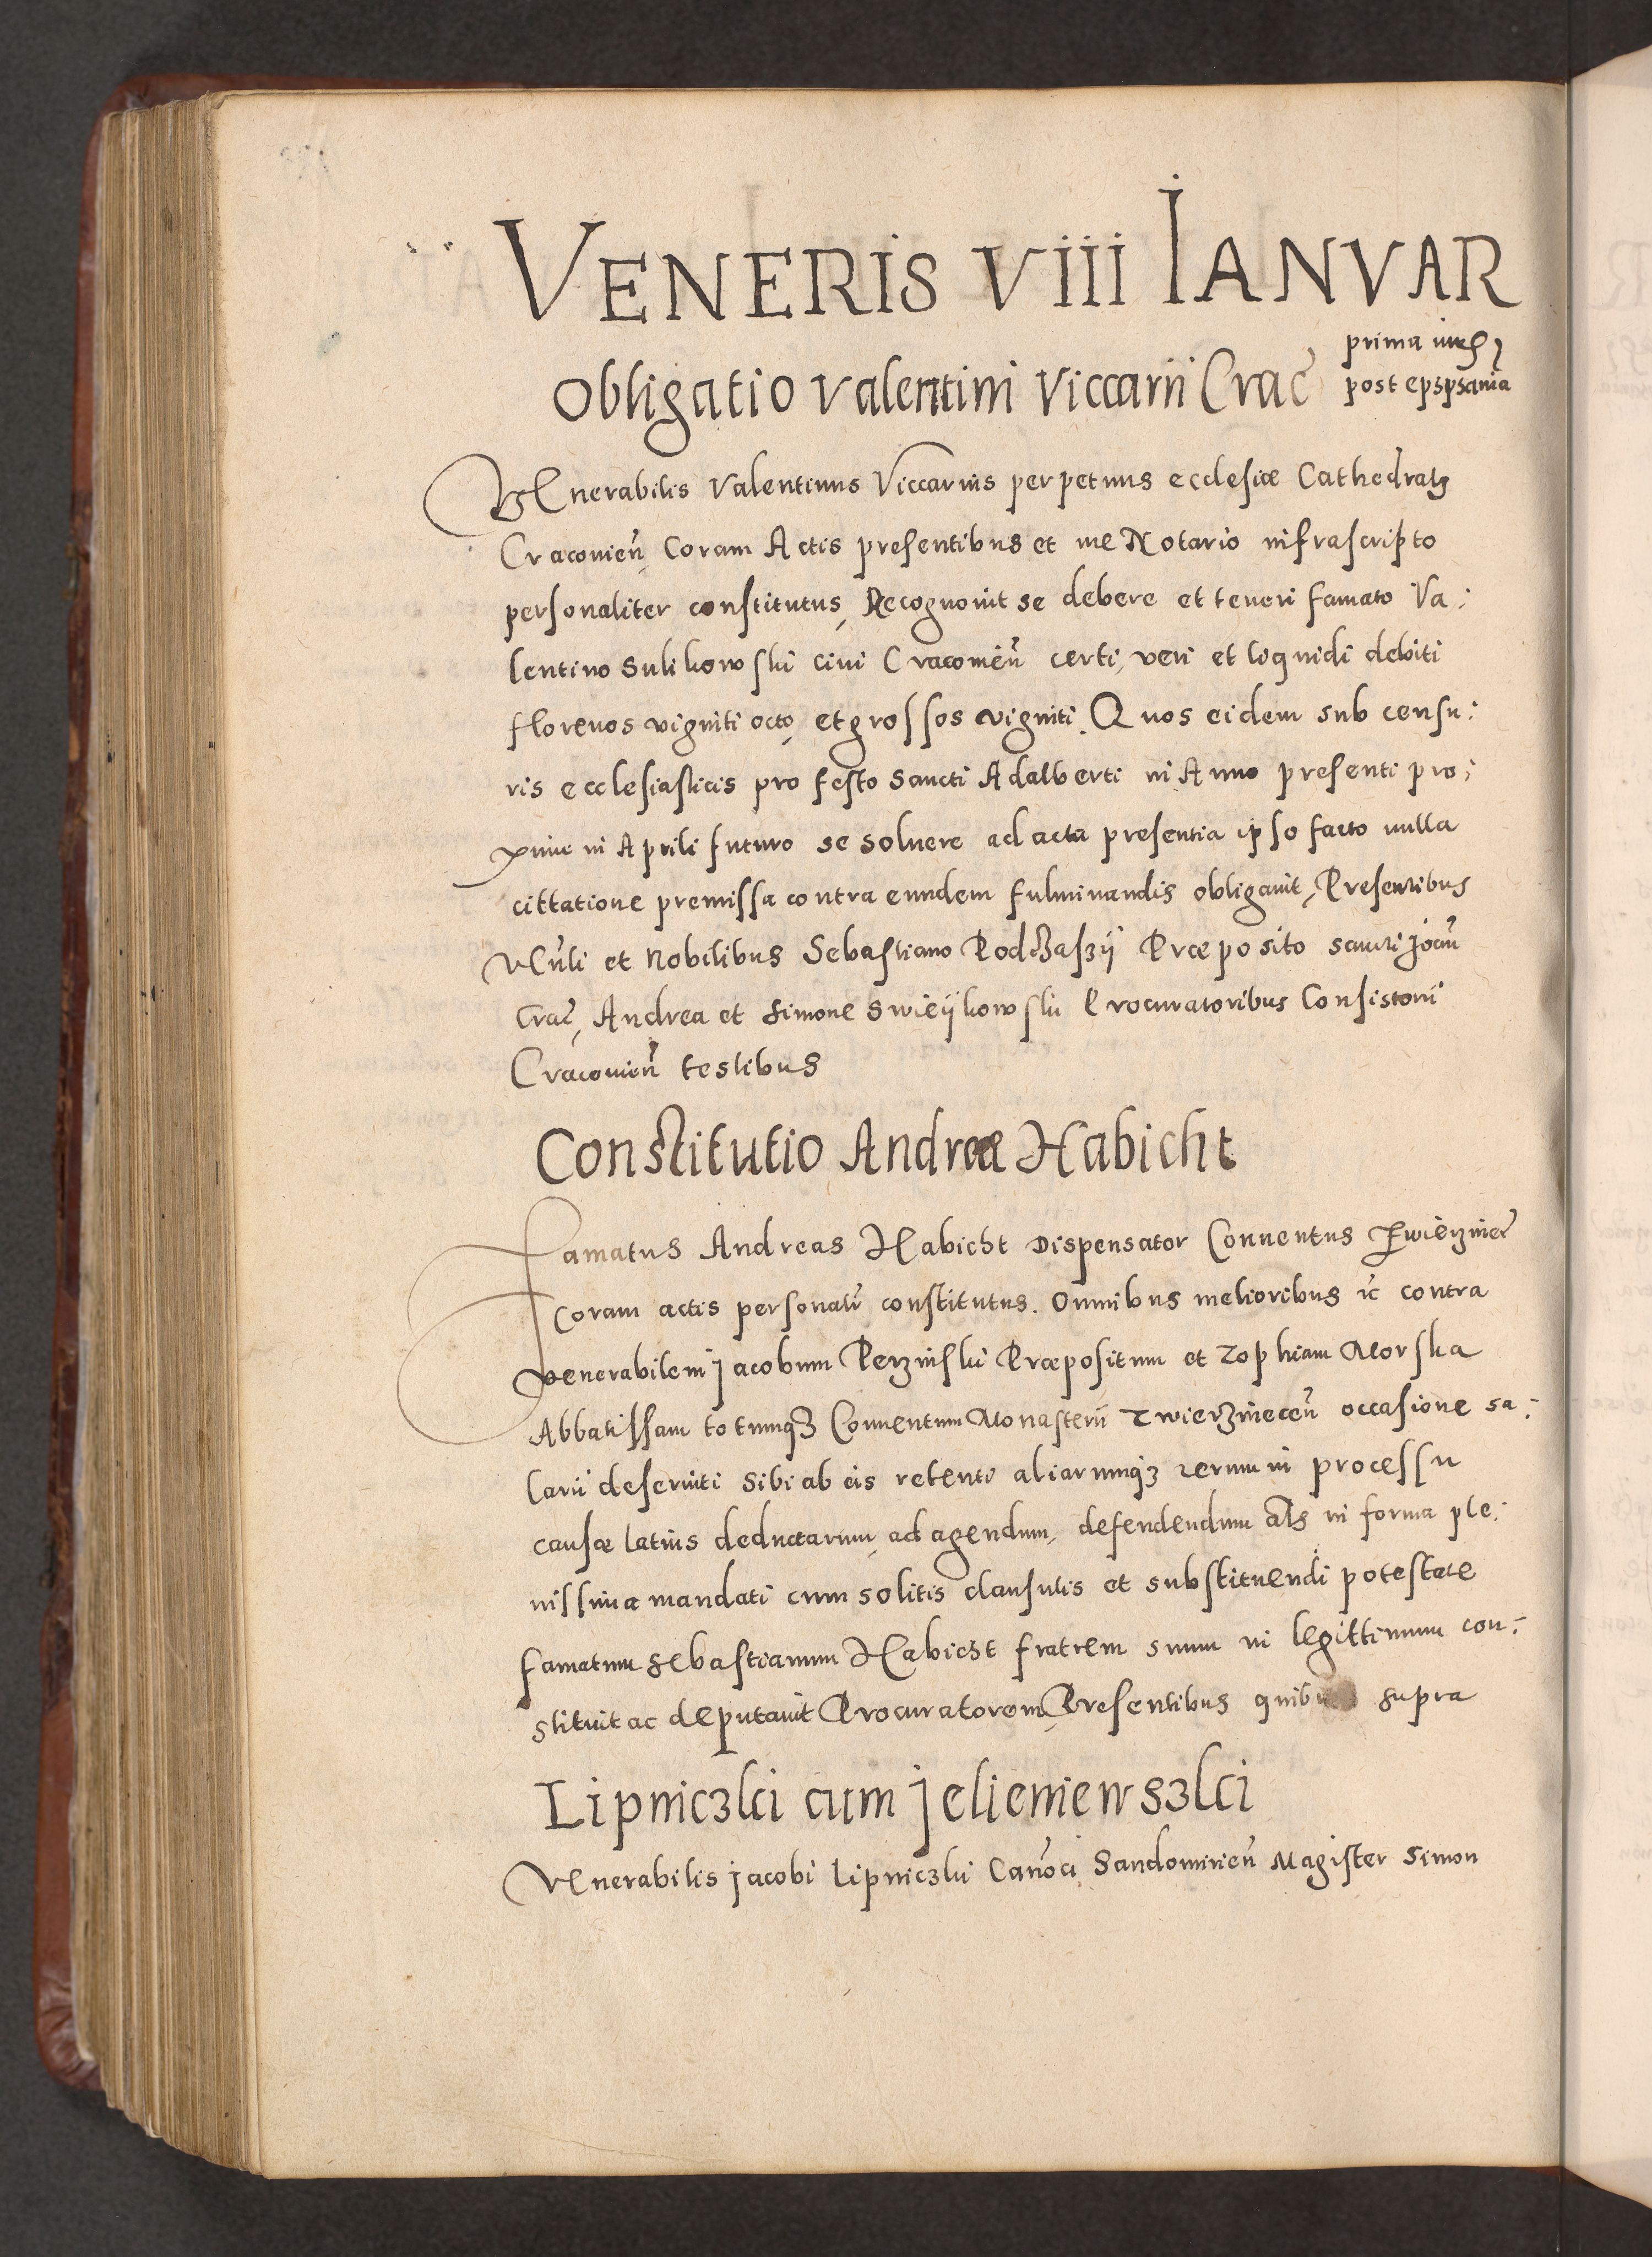 VENERIS VIII IANVAR
prima
Obligatio Valentini Viccarii Crac̄
post
VEnerabilis Valentinus Viccarius perpetuus ecclesiæ Cathedral
Cracouien̄, Coram Actis presentibus et me Notario infrascripto
personaliter constitutus, Recognouit se debere et teneri famato Va:
lentino Sulikowski ciui Cracouien̄ certi, veri et liquidi debiti
florenos viginti octo, et grossos viginti. Quos eidem sub censu:
ris ecclesiasticis pro festo Sancti Adalberti in Anno presenti pro:
xime in Aprili futuro se soluere ad acta presentia ipso facto nulla
cittatione premissa contra eundem fulminandis obligauit, Presentibus
Vn̄li et Nobilibus Sebastiano Podczaszii Præposito sancti Joan̄
Crac̄, Andrea et Simone Swieijkowski Procuratoribus Consistorii
Cracouien̄ testibus
Constitutio Andreæ Habicht
Famatus Andreas Habicht Dispensator Conuentus Zwierzinec̄
Coram actis personalr̄ constitutus. Omnibus melioribus ⁊c̄ contra
venerabilem Jacobum Perzinski Præpositum et Zophiam Morska
Abbatissam totumqꝫ Conuentum Monasterii Zwierzinecen̄ occasione sa:
larii deseruiti sibi ab eis retenti aliarumqꝫ rerum in processu
causæ latius deductarum, ad agendum, defendendum al̄s in forma ple:
nissima mandati cum solitis clausulis et substituendi potestate
famatum Sebastianum Habicht fratrem suum in legittimum con:
stituit ac deputauit Procuratorem, Presentibus quibus supra
Lipniczki cum Jelieniewszki
VEnerabilis Jacobi Lipniczki Can̄oci Sandomirien̄ Magister Simon